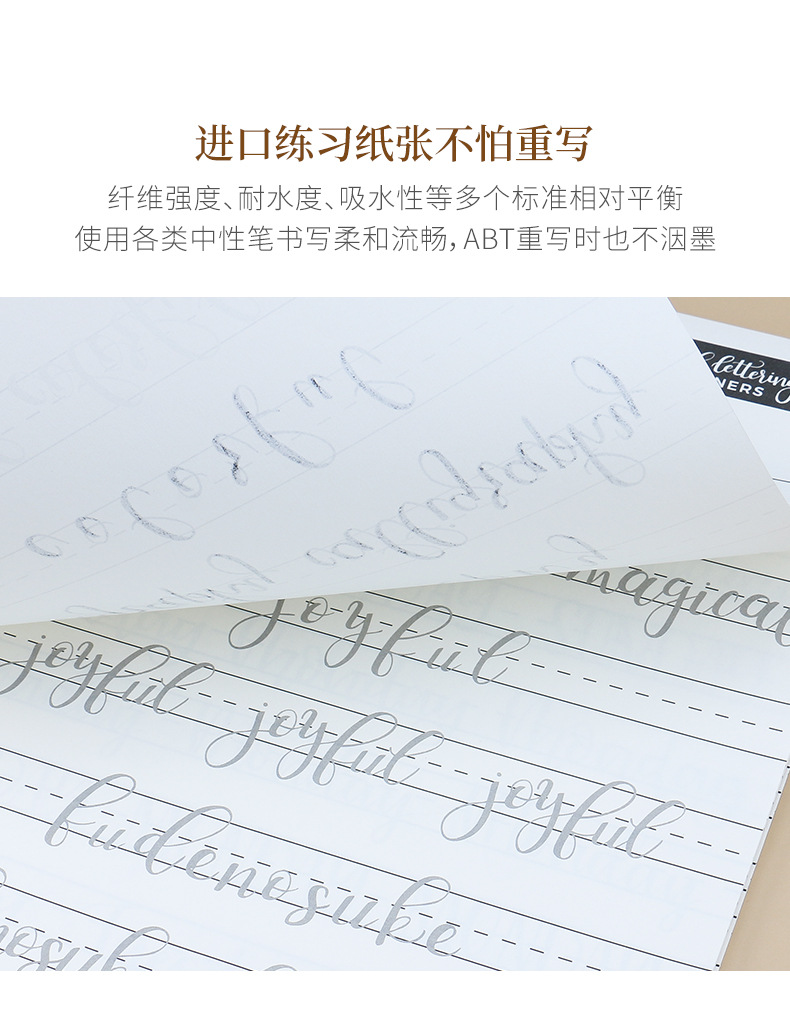 进口练习纸张不怕重写
纤维强度、耐水度、吸水性等多个标准相对平衡
使用各类中性笔书写柔和流畅，ABT重写时也不洇墨
lettering
NERS
magical
joyful
joyful joyful joyful
fudenosuke
nosuke